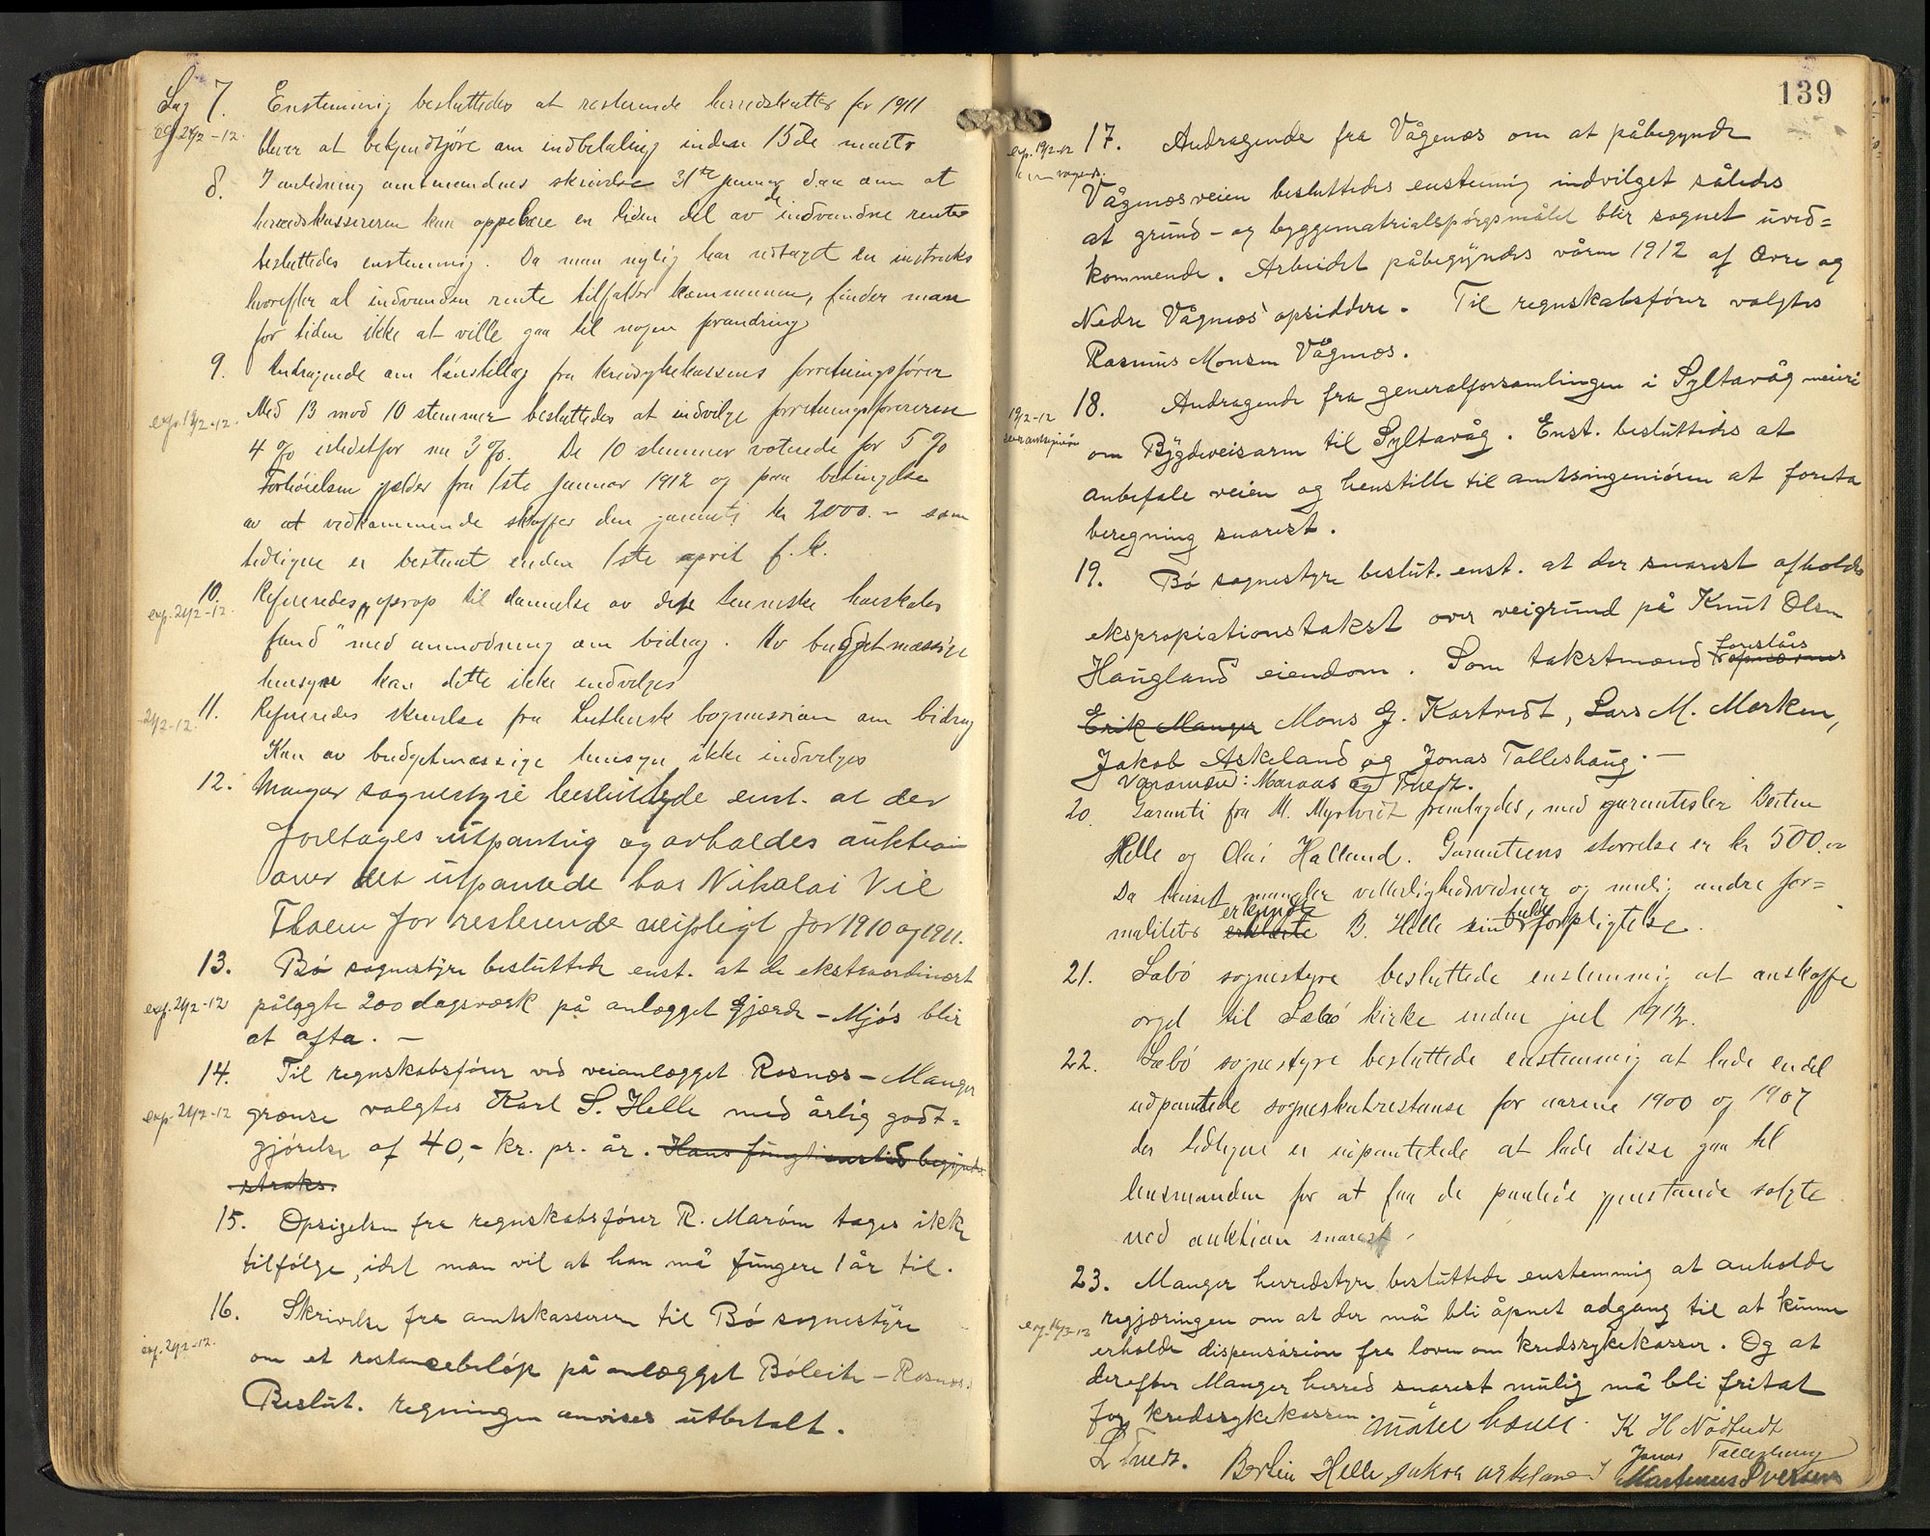 Sag 7. Enstemmig besluttedes at resterende herredskatter for 1911
exp 21/2-12. bliver at bekjendtgjøre om indbetaling inden 15de marts
8. I anledning amtmandens skrivelse 31te januar d.aa om at
herredskassereren kan oppebære en liden del av de indvundne renter
besluttedes enstemmig. Da man nylig har vedtaget en instruks
hvorefter al indvunden rente tilfalder kommunen, finder man
for tiden ikke at ville gaa til nogen forandring
9. Andragende om lønstillæg fra kredssykekassens forretningsfører
exp. 19/2-12. Med 13 mod 10 stemmer besluttedes at indvilge forretningsføreren
4 % istedetfor nu 3 %. De 10 stemmer voterede for 5 %
Forhøielsen gjælder fra 1ste januar 1912 og paa betingelse
av at vedkommende skaffer den garanti kr 2000.- som
tidligere er bestemt inden 1ste april f. k.
10. Refereredes "oprop til dannelse av det tekniske høiskoles
exp. 21/2-12. fund" med anmodning om bidrag. Av budgetmæssige
hensyn kan dette ikke indvilges
11. Refereredes skrivelse fra Luthersk bogmission om bidrag
21/2-12. Kan av budgetmæssige hensyn ikke indvilges
12. Manger sognestyre besluttede enst. at der
foretages utpanting og avholdes auktion
over det utpantede hos Nikolai Vil
Thoen for resterende veipligt for 1910 og 1911.
13. Bø sognestyre besluttede enst. at de ekstraordinært
exp. 21/2-12 pålagte 200 dagsværk på anlægget Gjærde - Mjøs blir
at afta. -
14. Til regnskabsfører ved veianlægget Rosnæs - Manger
exp. 21/2-12 grænse valgtes Karl S. Helle med årlig godt-
gjørelse af 40,- kr. pr. år. Hans fungtionstid begynder
straks.
15. Opsigelsen fra regnskabsfører R. Marøm tages ikke
tilfølge, idet man vil at han må fungere 1 år til.
16. Skrivelse fra amtskassereren til Bø sognestyre
exp. 21/2-12. om et restancebeløp på anlægget Bøleite - Rosnæs.
Beslut. regningen anvises utbetalt.
139
17. Andragende fra Vågenæs om at påbegynde
exp. 19/2-12
Vågenæsveien besluttedes enstemmig indvilget således
at grund- og byggematrialspørgsmålet blir sognet uved=
kommende. Arbeidet påbegyndes våren 1912 af Øvre og
Nedre Vågenæs opsiddere. Til regnskabsfører valgtes
Rasmus Monsen Vågenæs.
18. Andragende fra generalforsamlingen i Syltavåg meieri
19/2-12 om Bygdeveisarm til Syltavåg. Enst. besluttedes at
anbefale veien og henstille til amtsingeniøren at foreta
beregning snarest.
19. Bø sognestyre beslut. enst. at der snarest afholdes
ekspropiationstakst over veigrund på Knut Olsen
Haugland eiendom. Som takstmænd foreslås opnævnes
Erik Manger Mons G. Kartveit, Lars M. Marken,
Jakob Askeland og Jonas Talleshaug. -
Varamænd: Maraas og Tveit.
20. Garanti fra M. Myrtveit fremlagdes, med garantister Bertin
Helle og Olai Halland. Garantiens størrelse er kr 500.00
Da beviset mangler vitterlighedsvidner og mulig andre for=
maliteter erkjendte erklærte B. Helle sin fulde forpligtelse.
21. Sæbø sognestyre besluttede enstemmig at anskaffe
orgel til Sæbø kirke inden jul 1912.
22. Sæbø sognestyre besluttede enstemmig at lade en del
udpantede sogneskatrestanse for aarene 1900 og 1907
der tidligere er utpantede at lade disse gaa til
lensmanden for at faa de pantede gjenstande solgte
ved auktion snarest.
23. Manger herredstyre besluttede enstemmig at anholde
regjæringen om at der må bli åpnet adgang til at kunne
erholde dispensasion fra loven om kredssykekasser. Og at
derefter Manger herred snarest mulig må bli fritat
for kredssykekassen.
K H Nødtvedt
L Tveit. Bertin Helle Jakob Askeland Jonas Talleshaug
Martinus Iversen